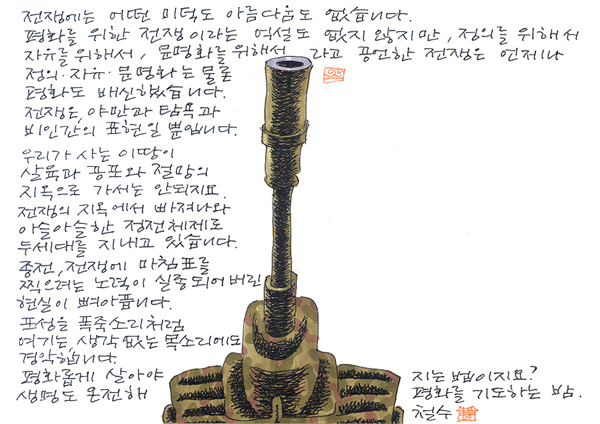 전쟁에는 어떤 미덕도 아름다움도 없습니다.
평화를 위한 전쟁이라는 역설도 없지 않지만, 정의를 위해서
자유를 위해서, 문명화를 위해서 라고 공언한 전쟁은 언제나
정의·자유·문명화는 물론
평화도 배신했습니다.
전쟁은, 야만과 탐욕과
비인간의 표현일 뿐입니다.
우리가 사는 이땅이
살육과 공포와 절망의
지옥으로 가서는 안되지요.
전쟁의 지옥에서 빠져나와
아슬아슬한 정전체제로
두세대를 지내고 있습니다.
종전, 전쟁에 마침표를
찍으려는 노력이 실종되어버린
현실이 뼈아픕니다.
포성을 폭죽소리처럼
여기는, 생각없는 목소리에도
경악합니다.
평화롭게 살아야
생명도 온전해
지는 법이지요?
평화를 기도하는 밤.
철수